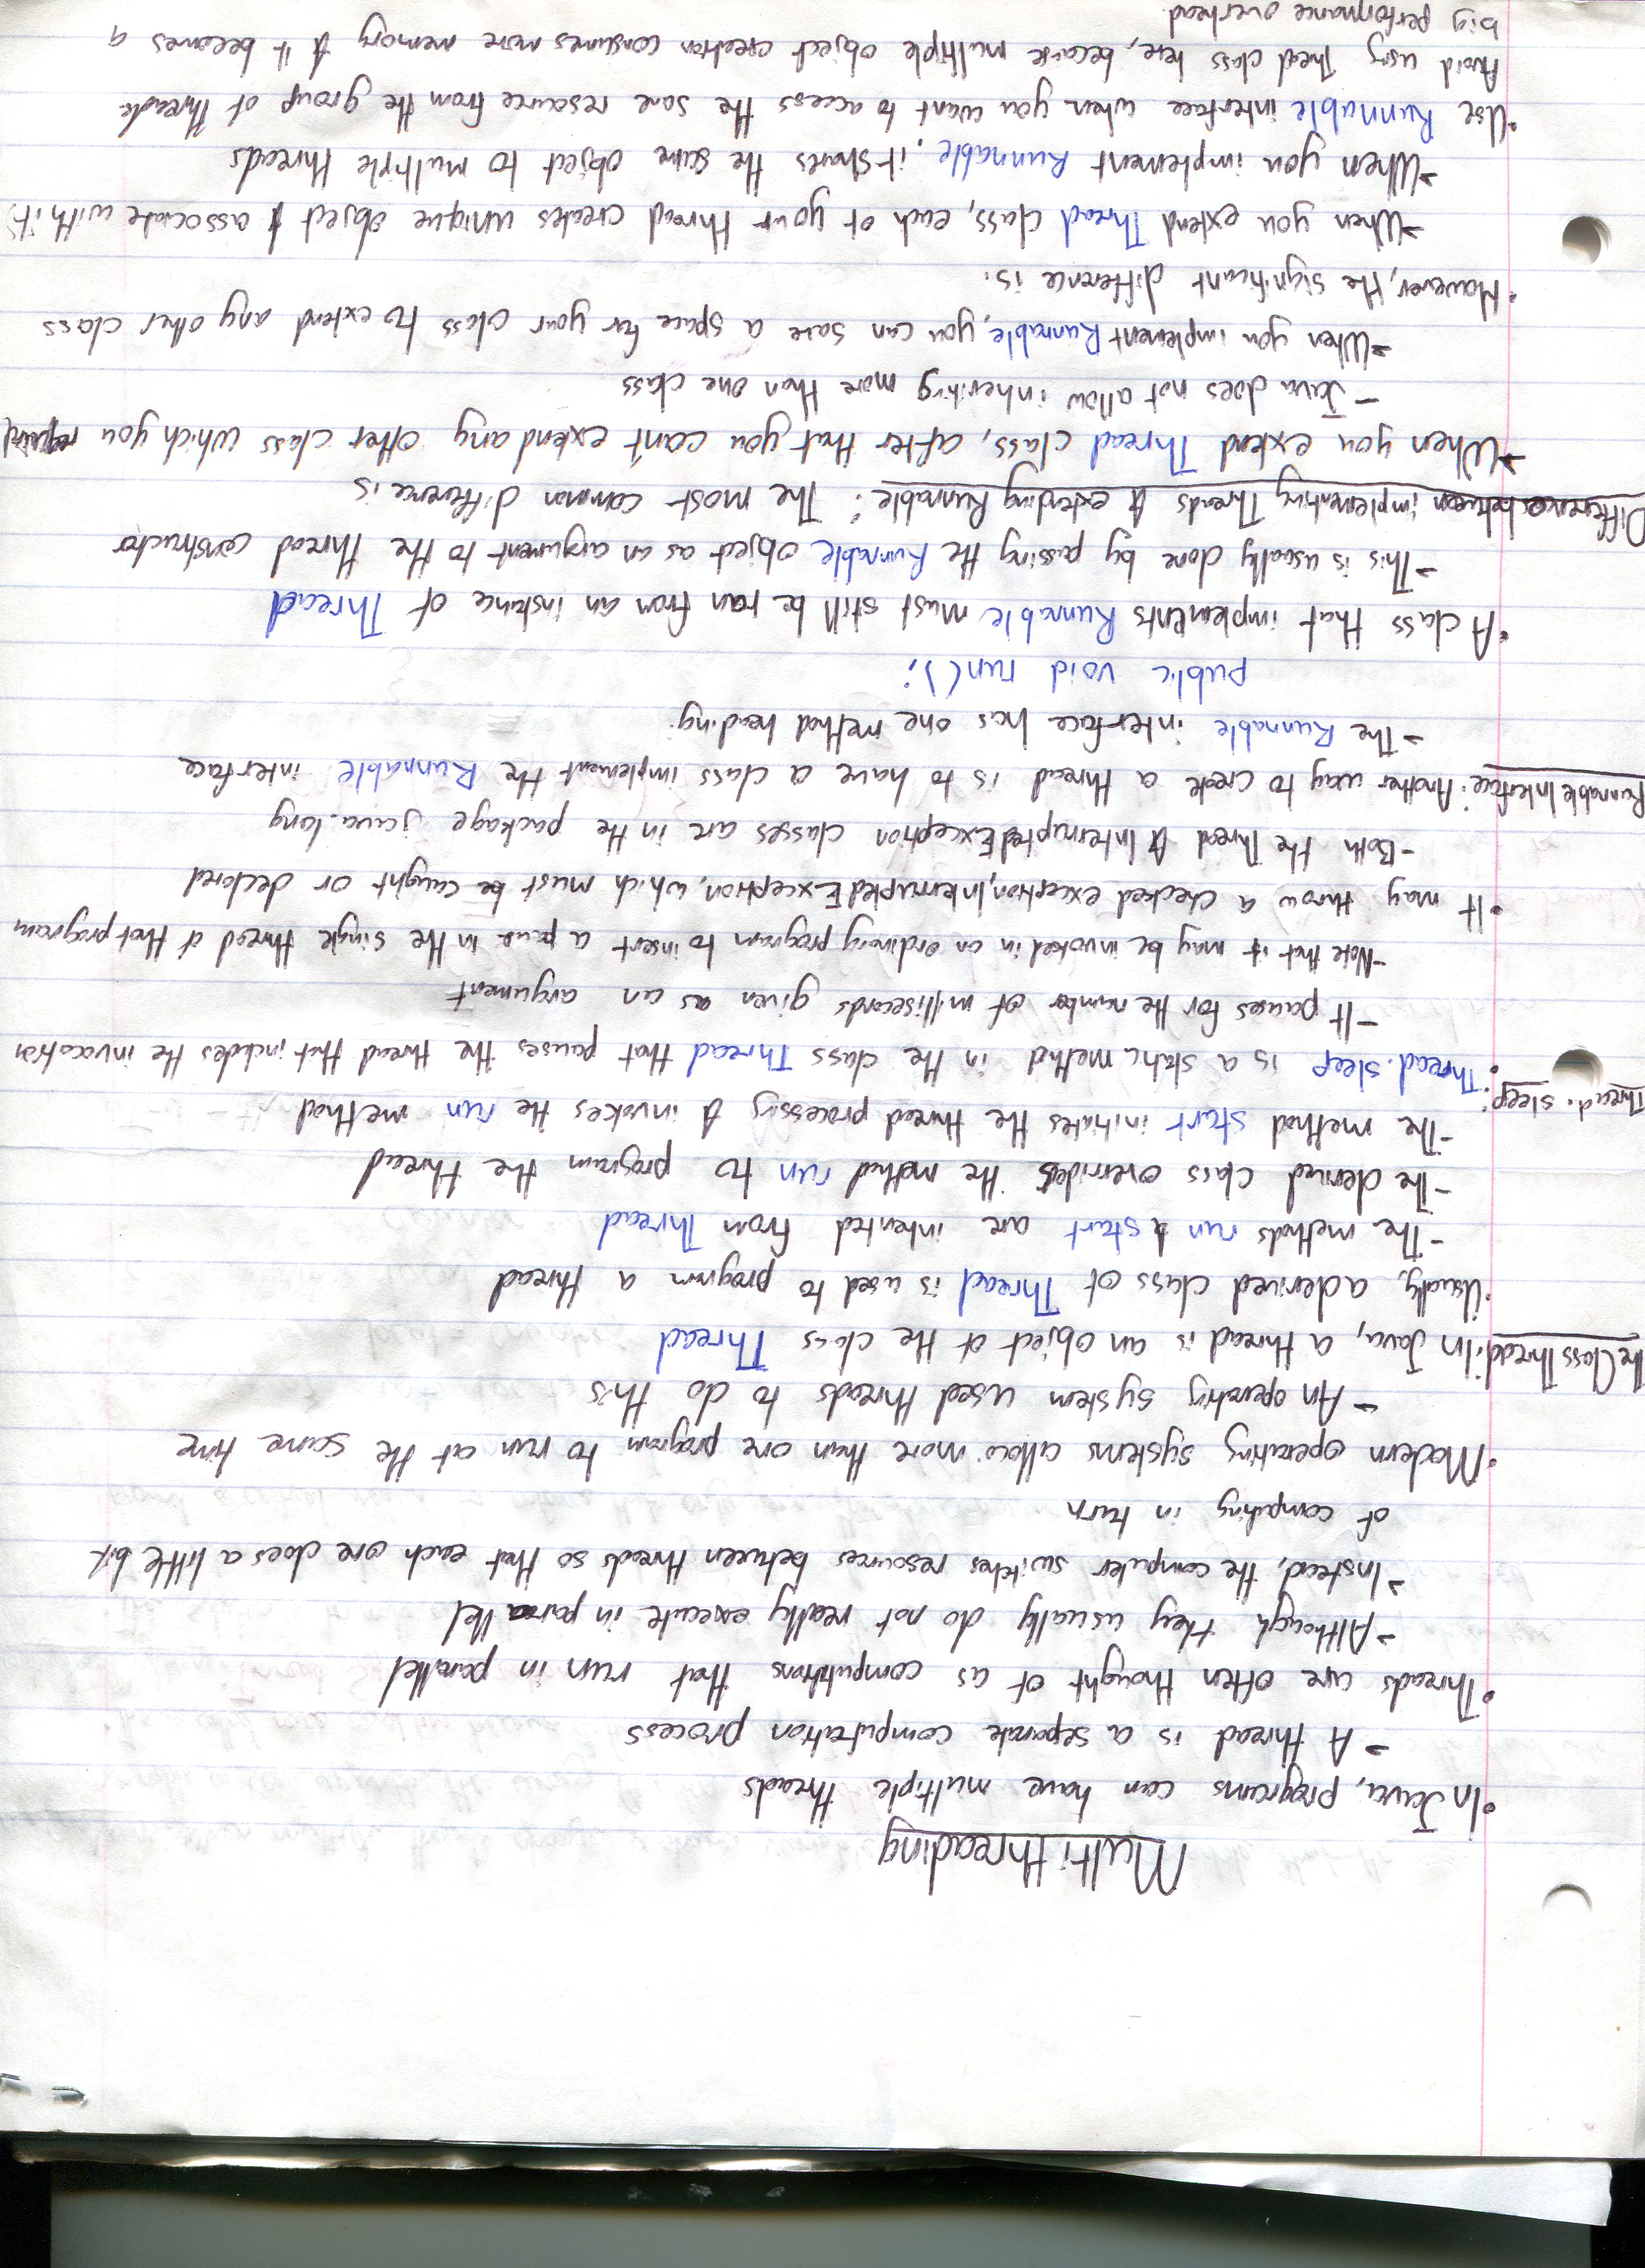 Multithreading
• In Java, programs can have multiple threads
→ A thread is a separate computation process
• Threads are often thought of as computations that run in parallel
→ Although they usually do not really execute in parallel
→ Instead, the computer switches resources between threads so that each one does a little bit
of computing in turn
• Modern operating systems allow more than one program to run at the same time
→ An operating system used threads to do this
The Class Thread: • In Java, a thread is an object of the class Thread
• Usually, a derived class of Thread is used to program a thread
- The methods run & start are inherited from Thread
- The derived class overrides the method run to program the thread
- The method start initiates the thread processing & invokes the run method
Thread.sleep: • Thread.sleep is a static method in the class Thread that pauses the thread that includes the invocation
- It pauses for the number of milliseconds given as an argument
- Note that it may be invoked in an ordinary program to insert a pause in the single thread of that program
• It may throw a checked exception, InterruptedException, which must be caught or declared
- Both the Thread & InterruptedException classes are in the package java.lang
Runnable Interface: Another way to create a thread is to have a class implement the Runnable interface
→ The Runnable interface has one method heading:
public void run();
• A class that implements Runnable must still be ran from an instance of Thread
→ This is usually done by passing the Runnable object as an argument to the thread constructor
Differences between implementing Threads & extending Runnable: The most common difference is
→ When you extend Thread class, after that you can't extend any other class which you required
- Java does not allow inheriting more than one class
→ When you implement Runnable, you can save a space for your class to extend any other class
• However, the significant difference is:
→ When you extend Thread class, each of your thread creates unique object & associate with it
→ When you implement Runnable, it shares the same object to multiple threads
• Use Runnable interface when you want to access the same resource from the group of threads.
Avoid using Thread class here, because multiple object creation consumes more memory & it becomes a
big performance overhead